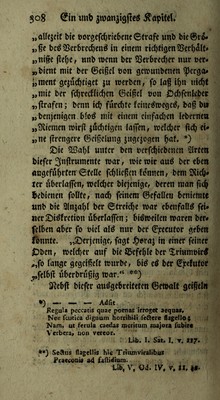 308 Ein und zwanzigstes Kapitel.
„allezeit die vorgeschriebene Strafe und die Grö-
„ße des Verbrechens in einem richtigen Verhält-
„nisse stehe, und wenn der Verbrecher nur ver-
„dient mit der Geißel von gewundenen Perga-
„ment gezüchtiget zu werden, so laß ihn nicht
„mit der schrecklichen Geißel mit Ochsenleder
„strafen; denn ich fürchte keinesweges, daß du
„denjenigen blos mit einem einfachen ledernen
„Riemen wirst züchtigen lassen, welcher sich ei-
„ne strengere Geißelung zugezogen hat. *)
Die Wahl unter den verschiedenen Arten
dieser Instrumente war, wie wir aus der eben
angeführten Stelle schließen können, dem Rich-
ter überlassen, welcher diejenige, deren man sich
bedienen sollte, nach seinem Gefallen bestimmte
und die Anzahl der Streiche war ebenfalls sei-
ner Diskretion überlassen; bisweilen waren der-
selben aber so viel als nur der Executor geben
konnte. „Derjenige, sagt Horaz in einer seiner
Oden, welcher auf die Befehle der Triumvirs
„so lange gegeißelt wurde, bis es der Exekutor
„selbst überdrüßig war." **)
Nebst dieser ausgebreiteten Gewalt geißeln
*) — — — Adsit
Regula peccatis quae poenas irroget aequas,
Nec scutica dignum horribili sectere flagello;
Nam, ut ferula caedas meritum majora subire
Verbera, non vereor.
Lib. I. Sat. I, v. 117.
**) Sectus flagellis hic Triumviralibus
Praeconis ad fastidium.
Lib, V, Od. IV, v. 11.